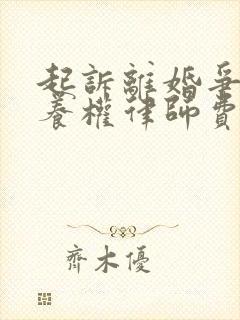 起訴離婚爭
養權律師費
齊木優